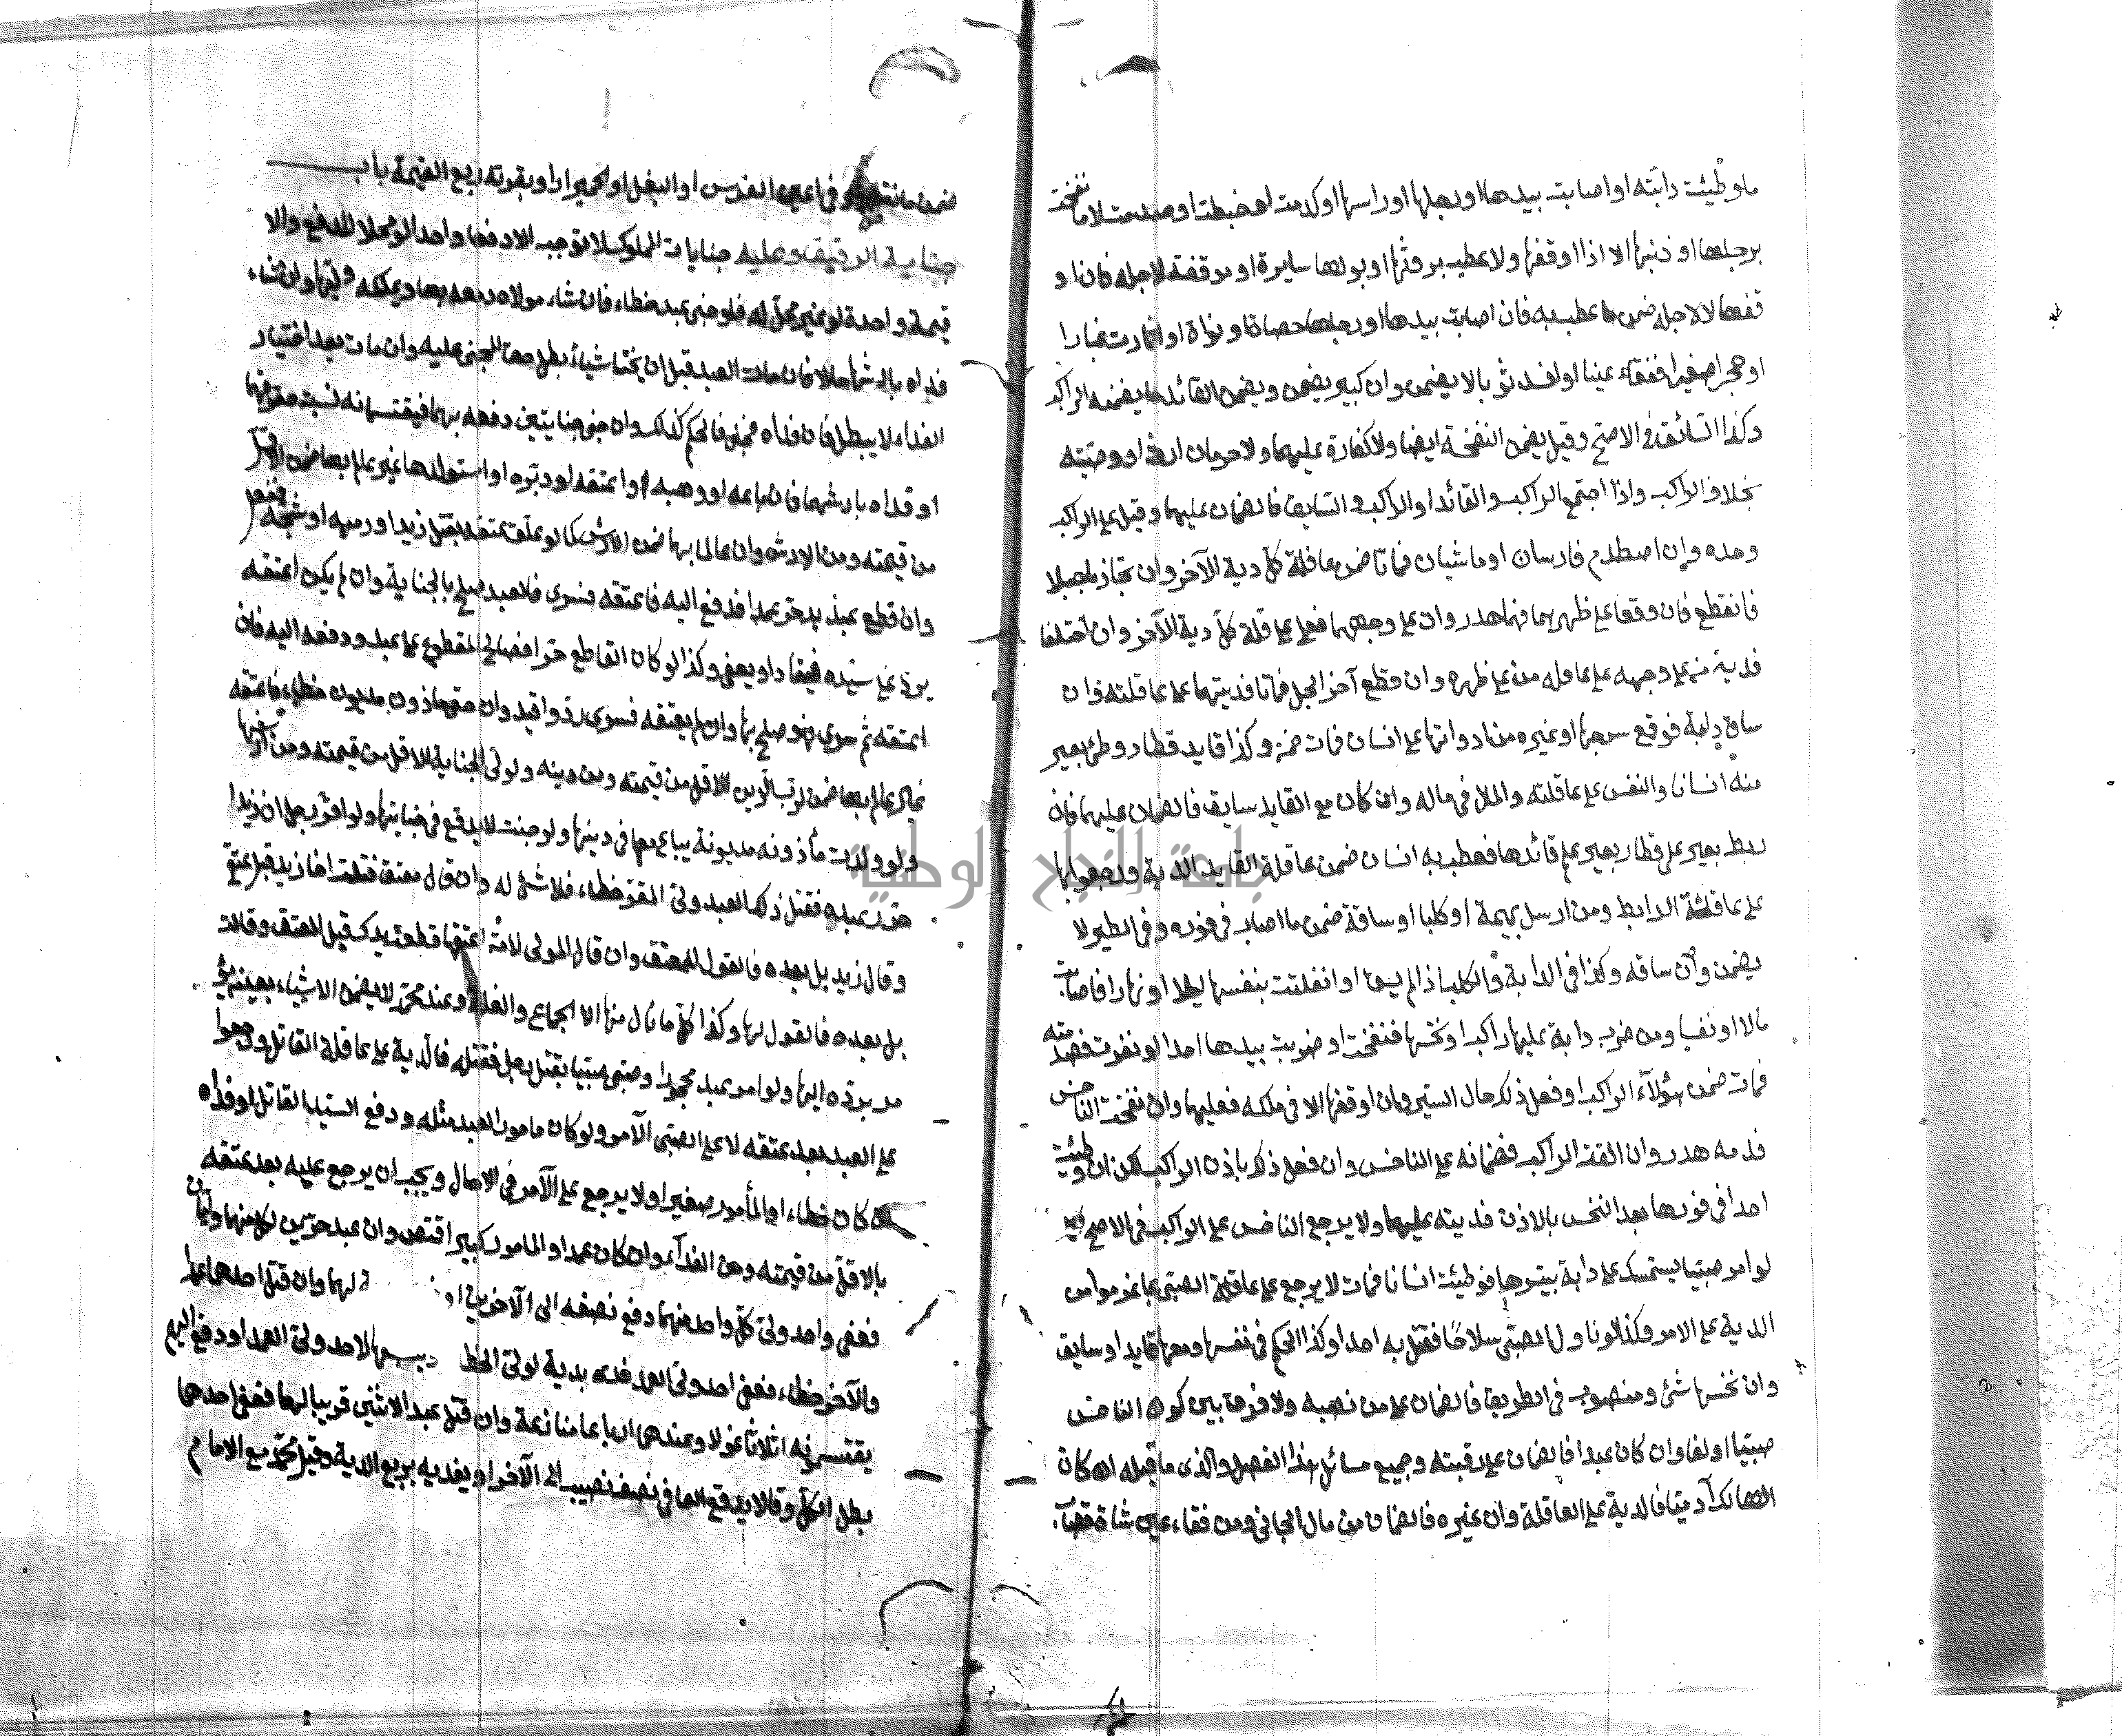 ما وطئت دابته او اصابت بيدها او رجلها او راسها او كدمت او خبطت او صدمت لا ما نفحت
برجلها او ذنبها الا اذا اوقفها ولا عطب بروثها او بولها سايرة او موقفة لاجله فان او
قفها لا لاجله ضمن ما عطب به فان اصابت بيدها او رجلها حصاة او نواة او اثارت غبارا
او حجرا صغيرا ففقاء عينا او افسد ثوبا لا يضمن وان كبير يضمن ويضمن القائد ما يضمنه الراكب
وكذا السائق في الاصح وقيل يضمن النفخة ايضا ولا كفارة عليهما ولا حرمان ارث او وصيته
بخلاف الراكب واذا اجتمع الراكب والقائد او الراكب والسايق فالضمان عليهما وقيل على الراكب
وحده وإن اصطدم فارسان او ماشيان فماتا ضمن عاقلة كل دية الآخر وان تجاذبا حبلا
فانقطع فان وقعا على ظهرهما فهما هدر وان على وجههما فعلى عاقلة كل دية الآخر وان اختلفا
فدية من على وجهه على عاقلة من على ظهره وان قطع آخر الحبل فماتا فديتهما على عاقلته وان
ساق دابة فوقع سرجها او غيره من ادواتها على انسان فمات ضمن وكذا قايد قطار وطئ بعير
منه انسانا والنفس على عاقلته والمال في ماله وان كان مع القايد سايق فالضمان عليهما فان
ربط بعير على قطار بغير علم قائدها فعطب به انسان ضمن عاقلة القايد الدية ورجعوا بها
على عاقلة الرابط ومن ارسل بهيمة او كلبا او ساقة ضمن ما اصاب في فوره وفي الطير لا
يضمن وان ساقه وكذا في الدابة والكلب اذا لم يسق او انفلتت بنفسها ليلا او نهارا فاصابت
مالا او نفسا ومن ضرب دابة عليها راكب او نخسها فنفحت او ضربت بيدها احدا او نفرت فصدمته
فمات ضمن هؤلاء الراكب او فعل ذلك حال السير وان اوقفها لا في ملكه فعليهما وان نفحت الناخس
فدمه هدر وان القت الراكب فضمانه على الناخس وان فعل ذلك باذن الراكب لكن ان وطئت
احدا في فورها بعد النخس بالاذن فديته عليهما ولا يرجع الناخس على الراكب في الاصح كما
لو امر صبيا يستمسك على دابة بسيرها فوطئت انسانا فمات لا يرجع على عاقلة الصبي بما غرموا من
الدية على الآمر وكذا لو ناول الصبي سلاحا فقتل به احدا وكذا الحكم في نخسها ومعها قايد او سايق
وان نخسها شئ منصوب في الطريق فالضمان على من نصبه ولا فرق بين كون الناخس
صبيا او بالغا وان كان عبدا فالضمان على رقبته وجميع مسائل هذا الفصل والذي ما قبله ان كان
الهالك آدميا فالدية على العاقلة وان غيره فالضمان من مال الجاني ومن فقاء عين شاة قصاب
ضمن ما نقص وفي عين الفرس او البغل او الحمير او بقرته ربع القيمة باب
جناية الرقيق وعليه جنايات المملوك لا توجب الا دفعا واحدا لو محلا للدفع والا
قيمة واحدة لو غير محل له فلو جنى عبد خطاء فان شاء مولاه دفعه بها ويملكه وليها وان شاء
فداه بارشها حالا فان مات العبد قبل ان يختار شياء بطل حق المجني عليه وان مات بعد اختيار
الفداء لا يبطل فان فداه فجنى فالحكم كذلك وان جنى جنايتين دفعه بهما فيقتسمانه نسبة حقوقهما
او فداه بارشهما فان باعه او وهبه او اعتقه او دبره او استولدها غير عالم بها ضمن الاقل
من قيمته ومن الارش وان عالما بها ضمن الارش كما لو علق عتقه بقتل زيد او رميه او شجه ففعل
وان قطع عبد يد حر عمدا فدفع اليه فاعتقه فسرى فالعبد صلح بالجناية وان لم يكن اعتقه
يرد على سيده فيقاد او يعفى وكذا لو كان القاطع حرا فصالح المقطوع على عبد ودفعه اليه فان
اعتقه ثم سرى فهو صلح بها وان لم يعتقه فسرى رد واقيد وان جنى ماذون مديون خطاء فاعتقه
غير عالم بها ضمن لرب الدين الاقل من قيمته ومن دينه ولولي الجناية الاقل من قيمته ومن ارشها
ولو ولدت مأذونه مديونة يباع معها في دينها ولو جنت لا يدفع في جنايتها ولو اقر رجل ان زيدا
حرر عبده فقتل ذلك العبد ولي المقر خطاء فلا شئ له وان قال معتق قتلت اخا زيد قبل عتقي
وقال زيد بل بعده فالقول للمعتق وان قال المولى لامته اعتقتها قطعت يدك قبل العتق وقالت
بل بعده فالقول لها وكذا كل ما نال منها الا الجماع والغلة وعند محمد لا يضمن الا شياء بعينه يؤ
مر برده اليها ولو امر عبد محجور او صبي صبيا بقتل رجل فقتله فالدية على عاقلة القاتل ورجعوا
على العبد بعد عتقه لا على الصبي الآمر ولو كان مامور العبد مثله ودفع السيد القاتل او فداه
ان كان خطاء او المأمور صغيرا ولا يرجع على الآمر في الحال ويجب ان يرجع عليه بعد عتقه
بالاقل من قيمته ومن الفداء وان كان عمدا والمامور كبيرا اقتص وان عبد حرين لكل منهما وليان
فعفى واحد ولي كل واحد منهما دفع نصفه الى الآخرين او لهما وان قتل احدهما عمدا
والآخر خطاء فعفى احد ولي العمد فدى بدية لولي الخطا لاحد ولي العمد او دفع اليهم
يقتسمونه اثلاثا عولا وعندهما ارباعا منازعة وان قتل عبد الاثنين قريبا لهما فعفى احدهما
بطل الكل وقالا يدفع العافي نصف نصيبه الى الآخر او يفديه بربع الدية وقيل محمد مع الامام
جامعة النجاح الوطنية